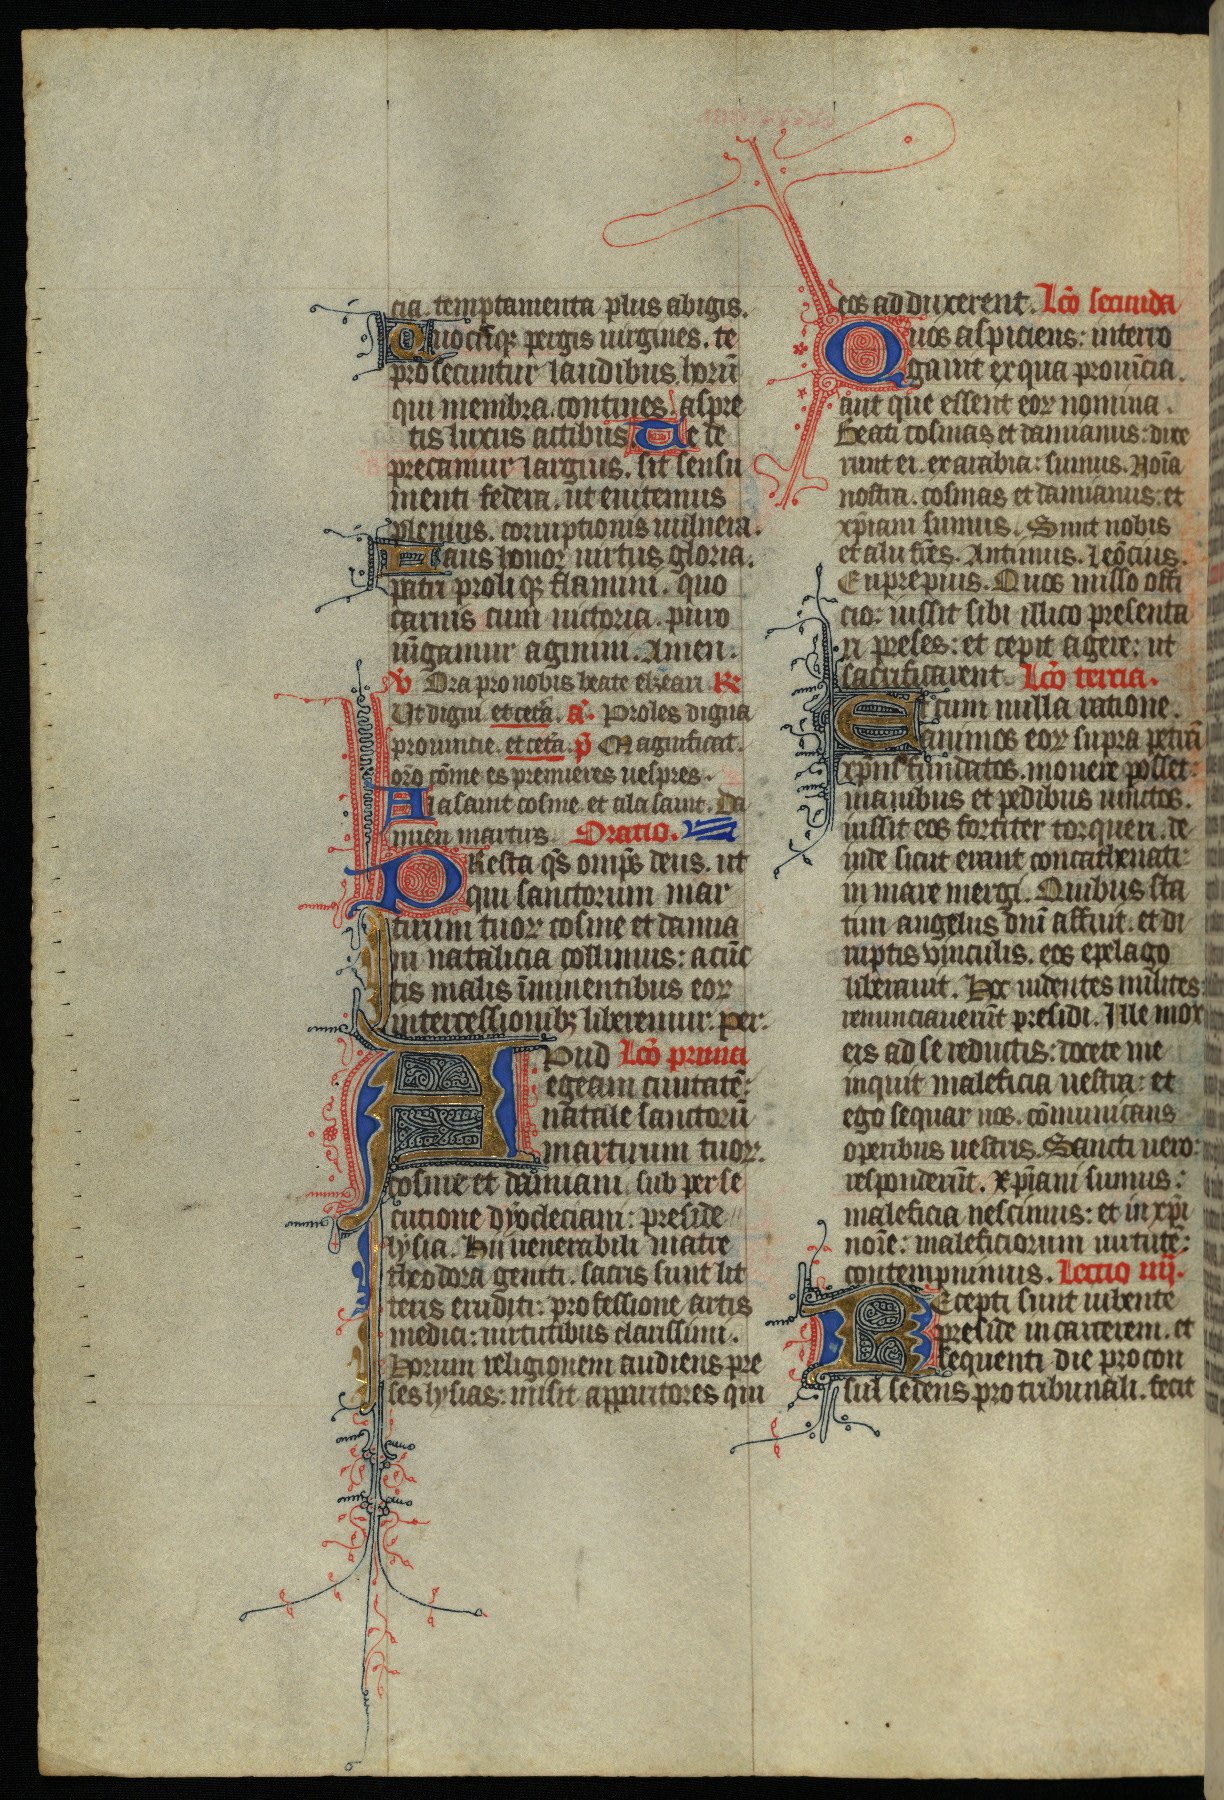 cia. temptamenta plus abigis.
Quocūqꝫ pergis uirgines. te
prosecuntur laudibus. horū
qui membra. contines. aspre
tis luxus actibus. Te de
precamur largius. sit sensu
menti federa. ut euitemus
plenius. corruptionis uulnera.
Laus honor uirtus gloria.
patri proliqꝫ flamini. quo
carnis cum uictoria. puro
iūgamur agmini. Amen.
℣ Ora pro nobis beate elzeari ℟
Ut digni. et cetā. a. Proles digna
prouintie. et cetā. p̄ Magnificat.
oro cōme es premieres uespres.
A la saint cosme et a la saint. Da
mien martirs. Oratio.
PResta q̄s omp̄s deus. ut
qui sanctorum mar
tirum tuoꝝ cosme et damia
ni natalicia collimus: a cūc
tis malis īminentibus eoꝝ
intercessionibꝫ liberemur. per.
APud Lcō prima
egeam ciuitatē:
natale sanctorū
martirum tuoꝝ.
cosme et damiani. sub perse
cutione dyocleciani: preside
lysia. Hii uenerabili matre
theodora geniti. sacris sunt lit
teris eruditi: professione artis
medici: uirtutibus clarissimi.
Horum religionem audiens pre
ses lysias: misit apparitores qui
eos adduxerent. Lcō secunda
Quos aspiciens: interro
gauit ex qua prouīcia.
aut que essent eoꝝ nomina.
Beati cosmas et damianus: dixe
runt ei. ex arabia: sumus. Noīa
nostra. cosmas et damianus: et
xp̄iani sumus. Sunt nobis
et alii fr̄es. Antimus. Leōcius.
Euprepius. Quos misso offi
cio: iussit sibi illico presenta
ri preses: et cepit agere: ut
sacrificarent. Lcō tercia.
Et cum nulla ratione.
animos eoꝝ supra petrā
xp̄m fundatos. mouere posset:
manibus et pedibus uinctos.
iussit eos fortiter torqueri. de
inde sicut erant concathenati:
in mare mergi. Quibus sta
tim angelus dn̄i affuit. et di
ruptis vinculis. eos e pelago
liberauit. Hoc uidentes milites:
renunciauerūt presidi. Ille mox
eis ad se reductis: docete me
inquit maleficia uestra: et
ego sequar uos. cōmunicans
operibus uestris. Sancti uero:
responderūt. xp̄iani sumus:
maleficia nescimus: et in xp̄i
noīe: maleficiorum uirtutē:
contempnimus. Lectio iiij.
REcepti sunt iubente
preside in carcerem. et
sequenti die procon
sul sedens pro tribunali. fecit